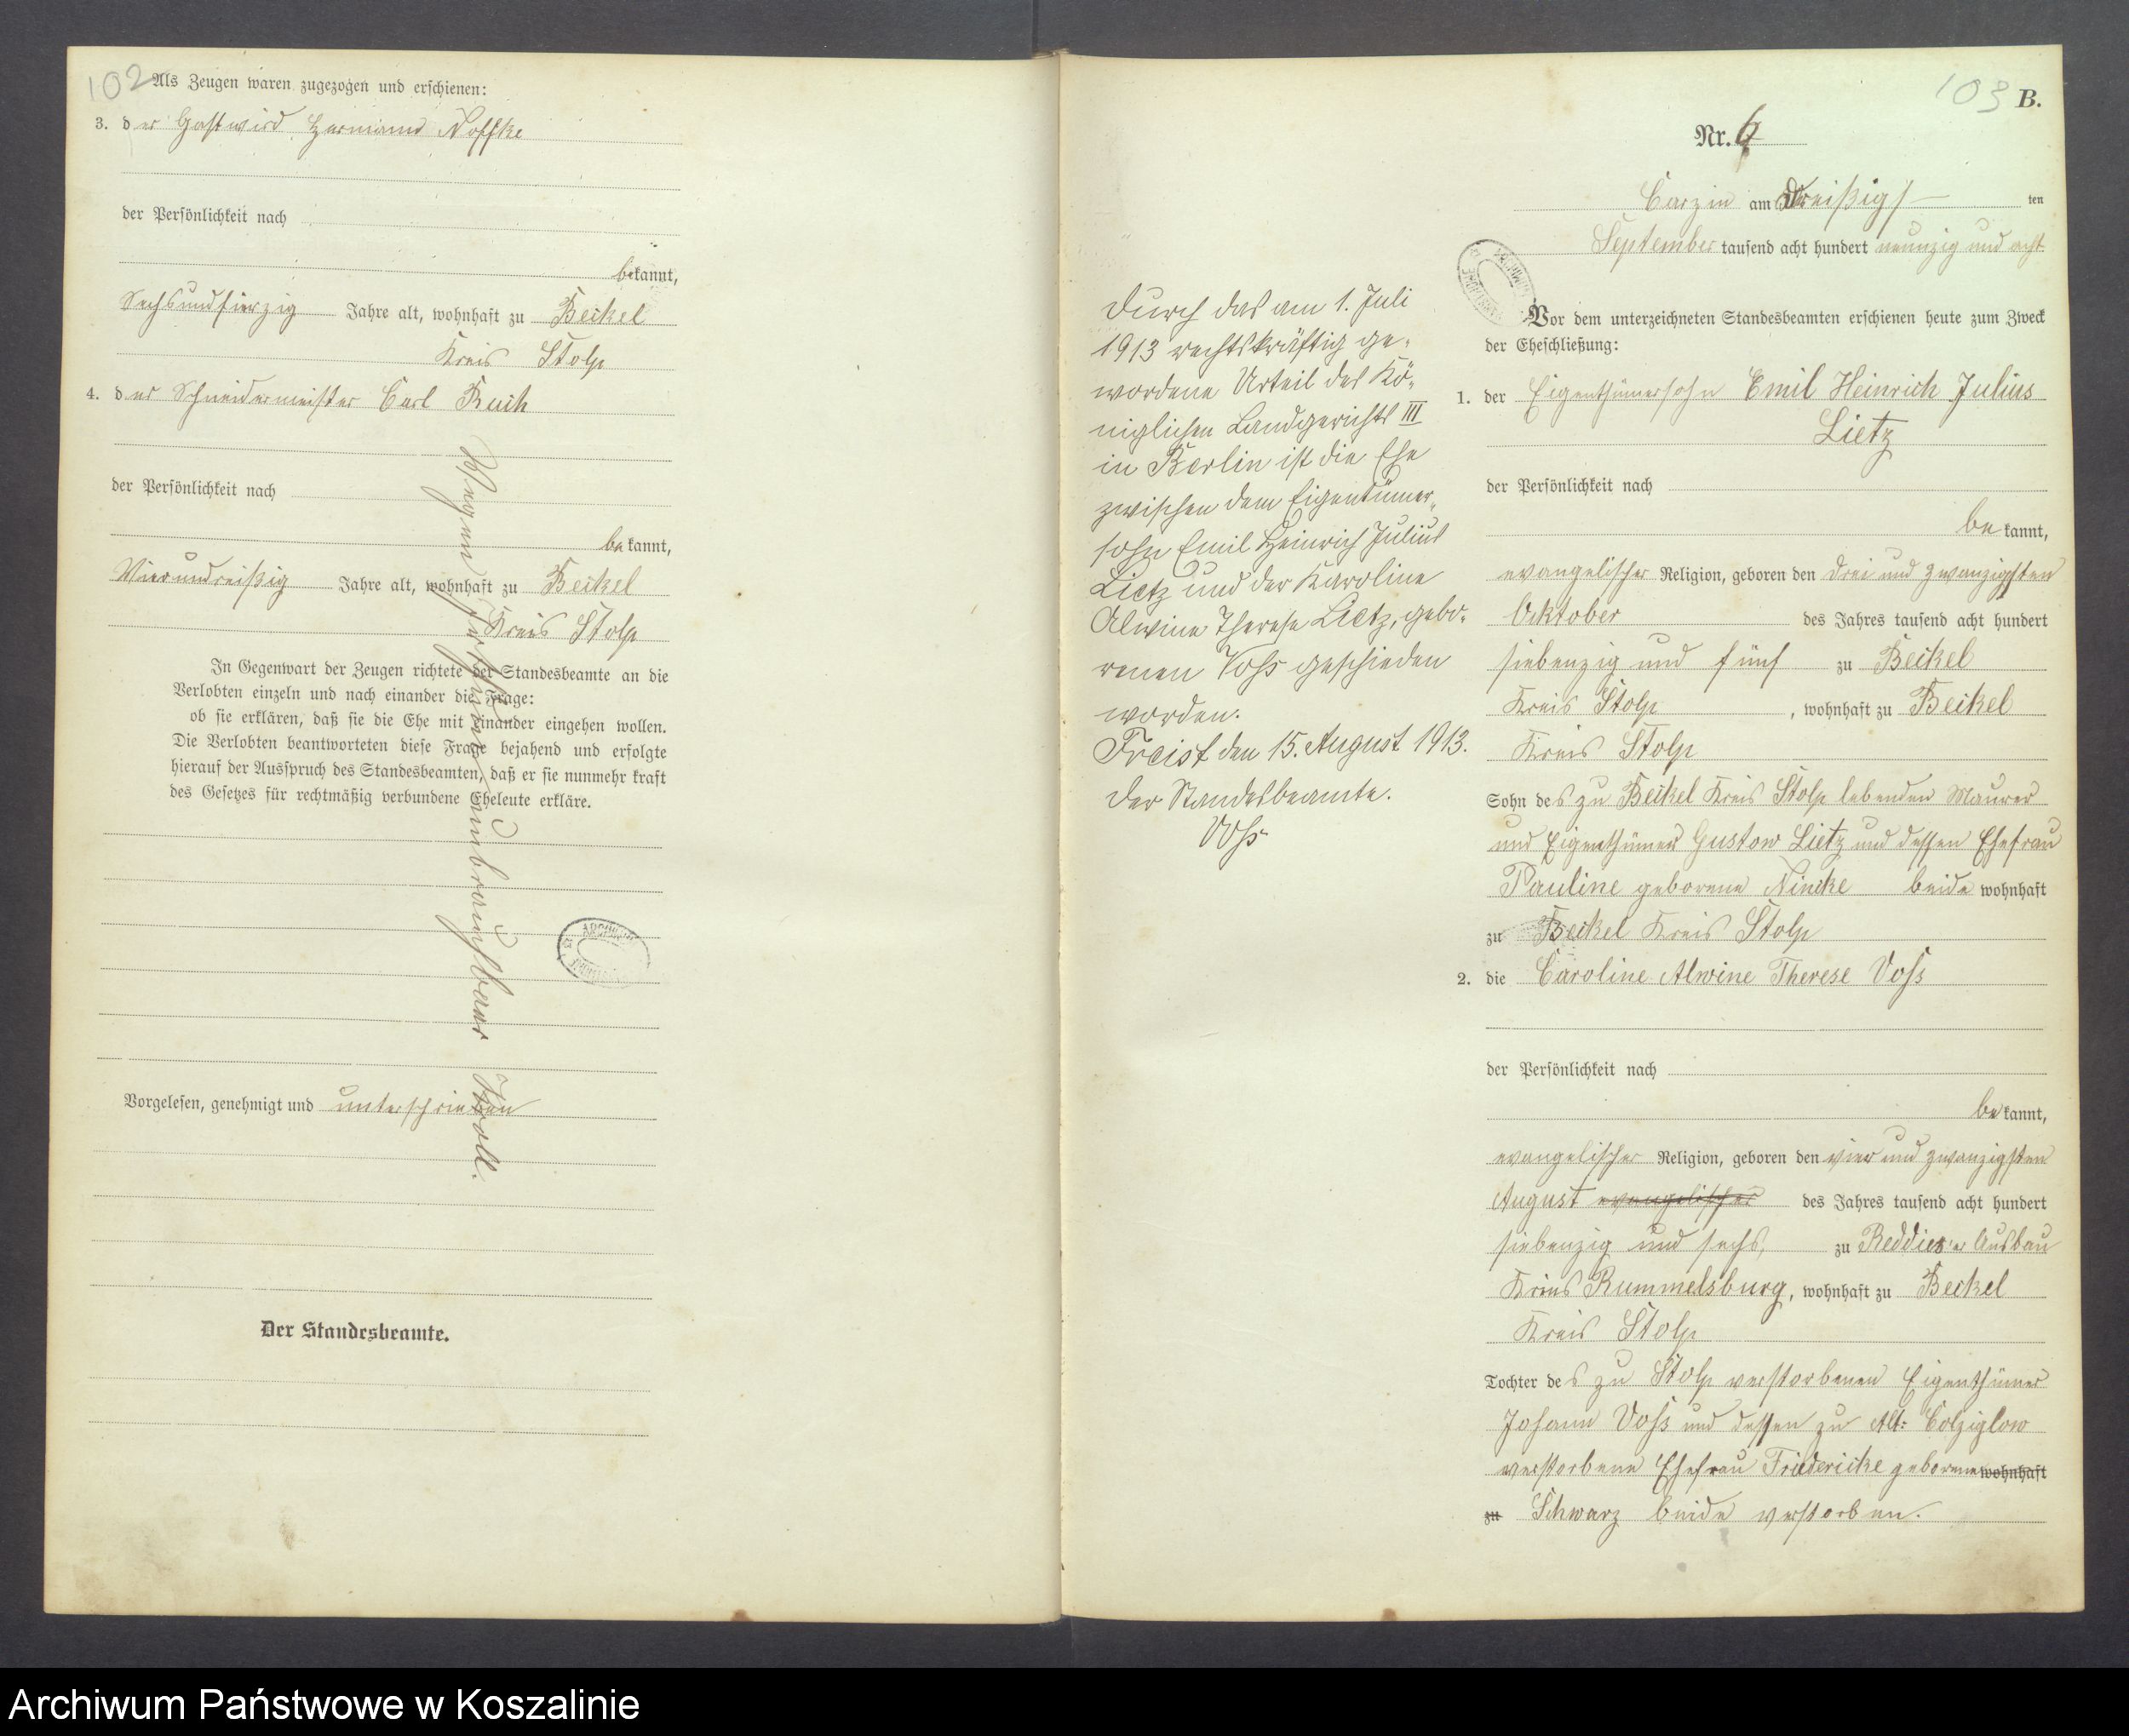 102
Als Zeugen waren zugezogen und erschienen:
3. der Gastwird Hermann Noffke
der Persönlichkeit nach
bekannt,
Sechsundfierzig Jahre alt, wohnhaft zu Beikel
Kreis Stolp
4. der Schneidermeister Carl Ruch
der Persönlichkeit nach
bekannt,
Vierundreißig Jahre alt, wohnhaft zu Beikel
Kreis Stolp
In Gegenwart der Zeugen richtete der Standesbeamte an die
Verlobten einzeln und nach einander die Frage:
ob sie erklären, daß sie die Ehe mit einander eingehen wollen.
Die Verlobten beantworteten diese Frage bejahend und erfolgte
hierauf der Ausspruch des Standesbeamten, daß er sie nunmehr kraft
des Gesetzes für rechtmäßig verbundene Eheleute erkläre.
Vorgelesen, genehmigt und unterschrieben
Der Standesbeamte.
Wegen unbrauchbaar
103 B.
Nr. 6
Carzin am Dreißigs ten
September tausend acht hundert neunzig und acht
Vor dem unterzeichneten Standesbeamten erschienen heute zum Zweck
der Eheschließung:
1. der Eigenthümersohn Emil Heinrich Julius
Lietz
der Persönlichkeit nach
be kannt,
evangelischer Religion, geboren den drei und zwanzigsten
Ocktober des Jahres tausend acht hundert
siebenzig und fünf zu Beikel
Kreis Stolp, wohnhaft zu Beikel
Kreis Stolp
Sohn des zu Beikel Kreis Stolp lebenden Maurer
und Eigenthümers Gustow Lietz und dessen Ehefrau
Pauline geborene Nincke beide wohnhaft
zu Beikel Kreis Stolp
2. die Caroline Alwine Therese Voss
der Persönlichkeit nach
be kannt,
evangelischer Religion, geboren den vier und zwanzigsten
August evangelischer des Jahres tausend acht hundert
siebenzig und sechs, zu Reddies'er Ausbau
Kreis Rummelsburg, wohnhaft zu Beckel
Kreis Stolp
Tochter des zu Stolp verstorbenen Eigenthümer
Johann Voss und dessen zu Alt: Colziglow
verstorbene Ehefrau Friedericke geborene wohnhaft
zu Schwarz beide verstorben.
Durch das am 1. Juli
1913 rechtskräftig ge-
wordene Urteil des Kö-
niglichen Landgerichts III
in Berlin ist die Ehe
zwischen dem Eigentümer-
sohn Emil Heinrich Julius
Lietz und der Karoline
Alwine Therese Lietz, gebo-
renen Voss geschieden
worden.
Freist den 15. August 1913.
Der Standesbeamte.
Voss
Archiwum Państwowe w Koszalinie